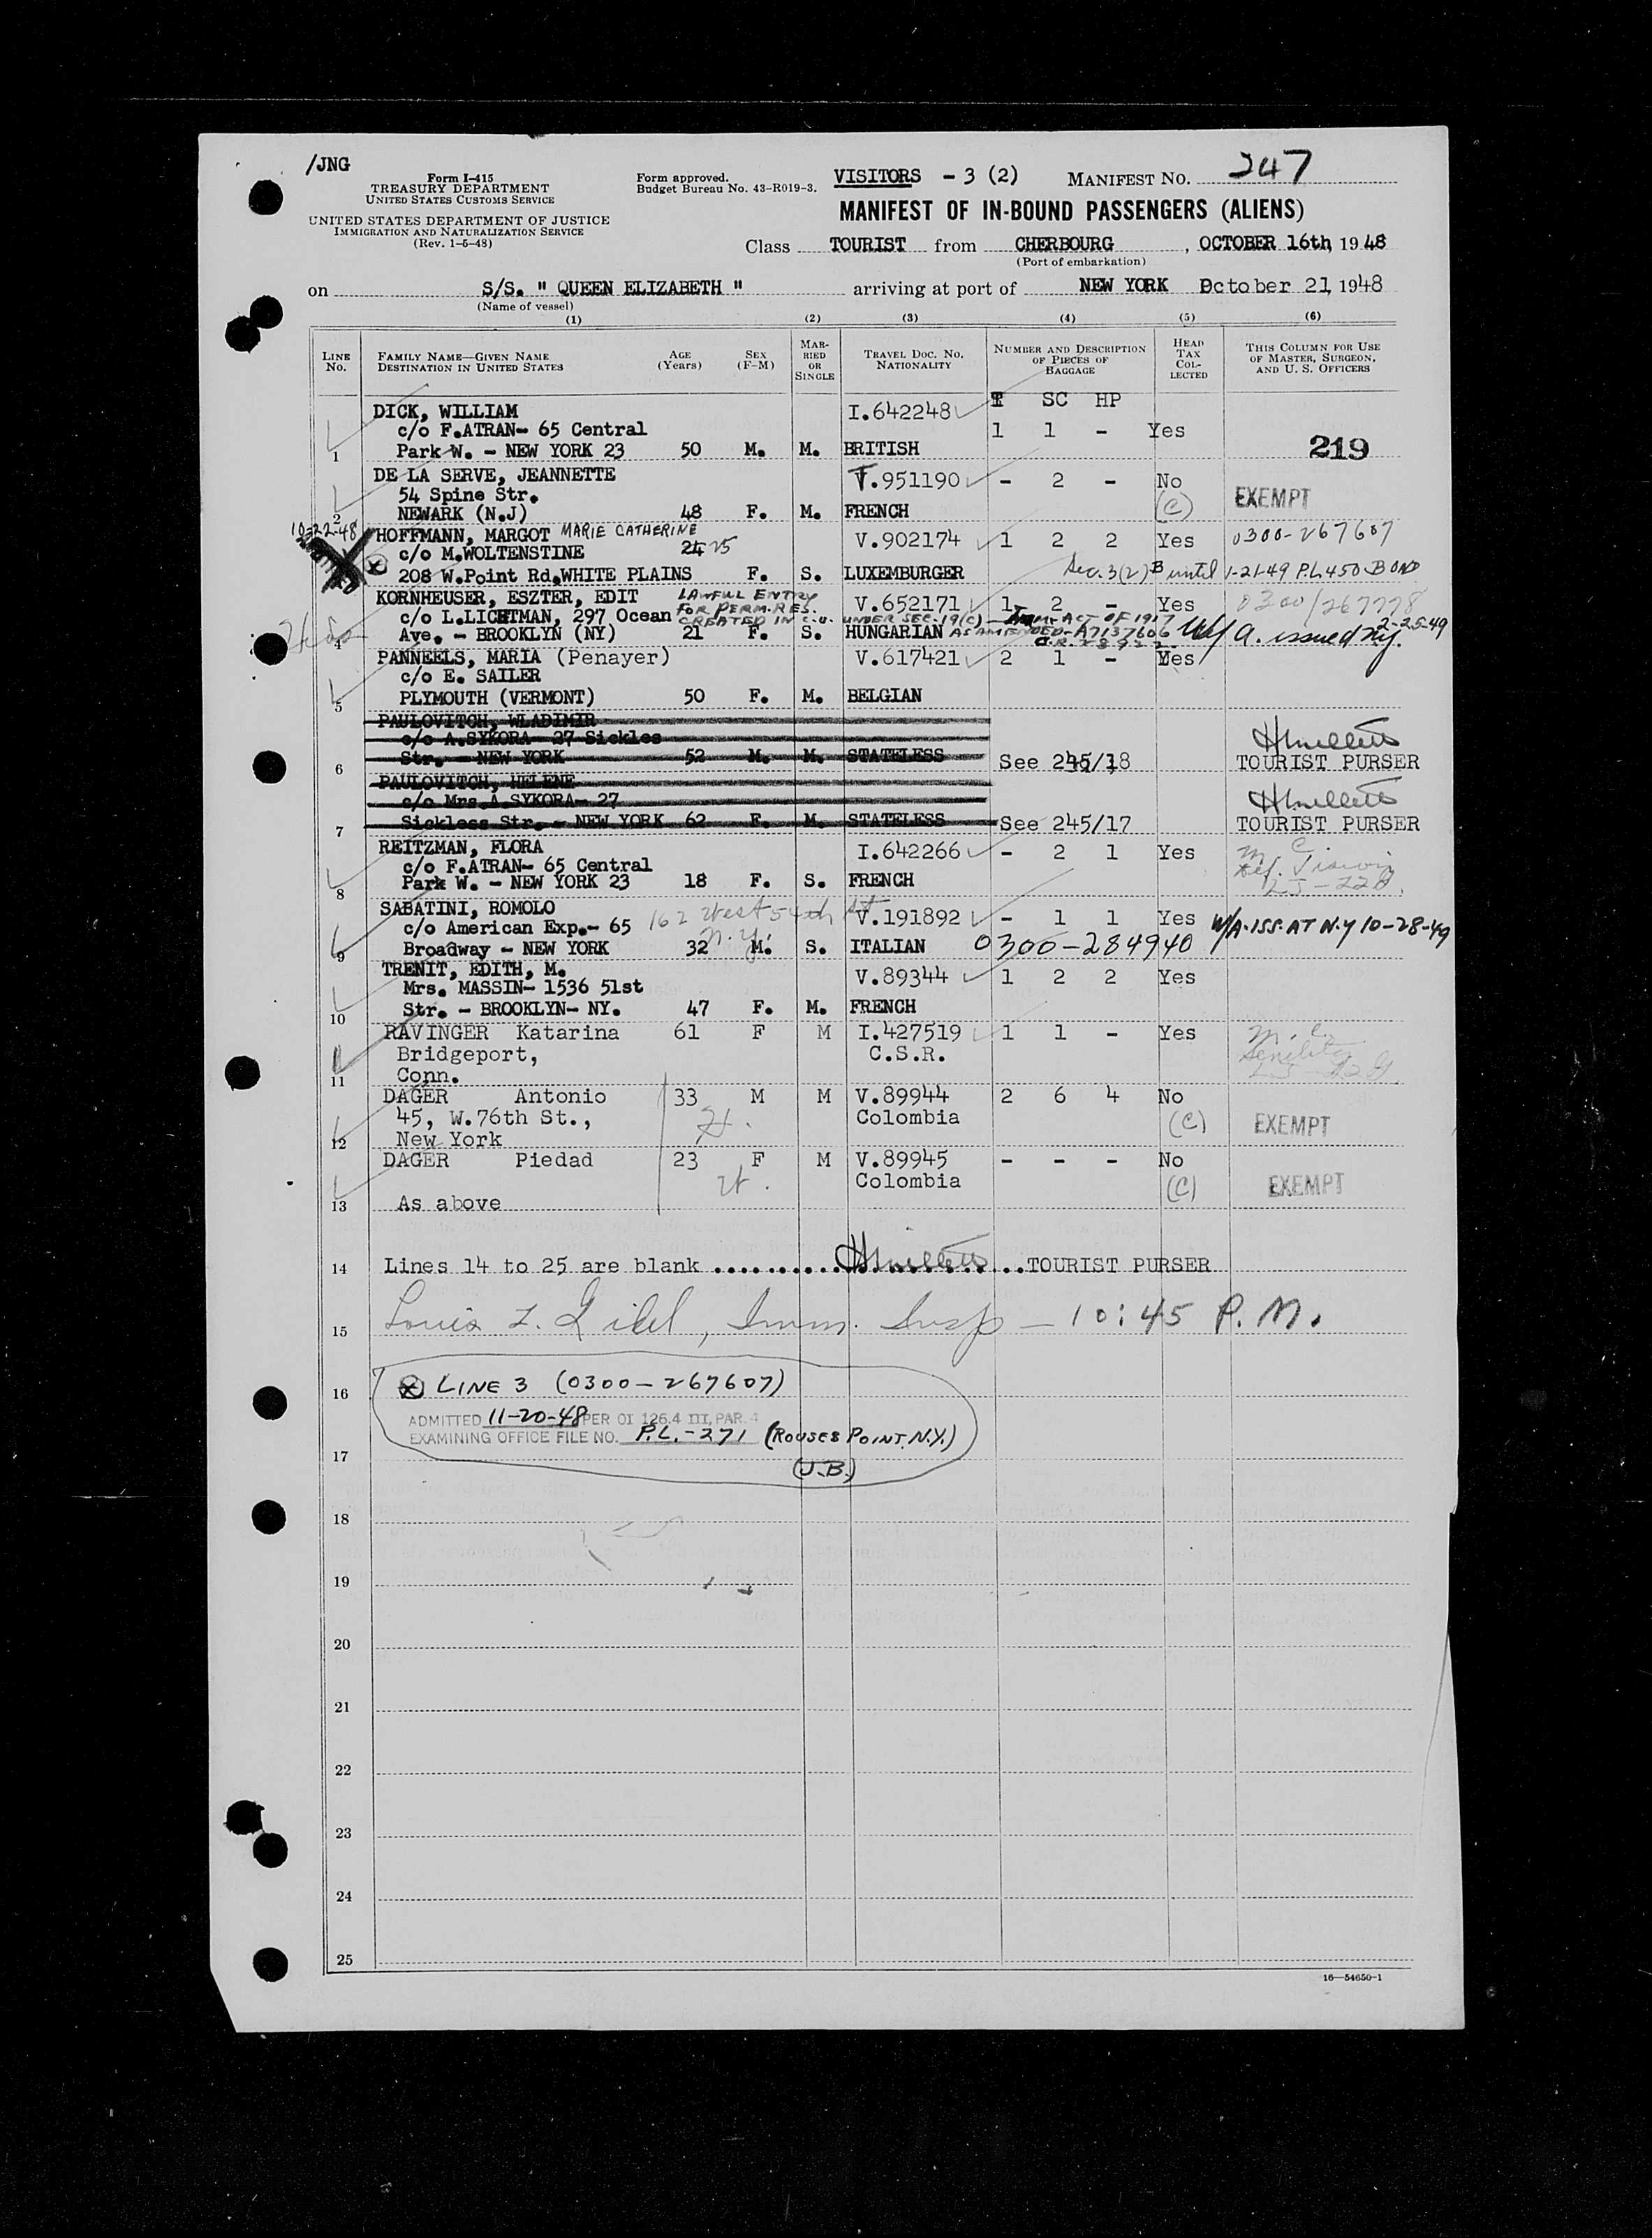 /JNG
Form I-415
TREASURY DEPARTMENT
UNITED STATES CUSTOMS SERVICE
UNITED STATES DEPARTMENT OF JUSTICE
IMMIGRATION AND NATURALIZATION SERVICE
(Rev. 1-5-48)
Form approved.
Budget Bureau No. 43-R019-3.
VISITORS - 3 (2) MANIFEST NO. 247
MANIFEST OF IN-BOUND PASSENGERS (ALIENS)
Class TOURIST from CHERBOURG, OCTOBER 16th, 1948
(Port of embarkation)
on S/S. " QUEEN ELIZABETH " arriving at port of NEW YORK October 21, 1948
(Name of vessel)
(1) (2) (3) (4) (5) (6)
LINE No. FAMILY NAME—GIVEN NAME DESTINATION IN UNITED STATES AGE (Years) SEX (F-M) MARRIED OR SINGLE TRAVEL DOC. NO. NATIONALITY NUMBER AND DESCRIPTION OF PIECES OF BAGGAGE HEAD TAX COLLECTED THIS COLUMN FOR USE OF MASTER, SURGEON, AND U. S. OFFICERS
T SC HP
DICK, WILLIAM I.642248
c/o F.ATRAN- 65 Central 1 1 - Yes
1 Park W. - NEW YORK 23 50 M. M. BRITISH 219
DE LA SERVE, JEANNETTE V.951190 - 2 - No
54 Spine Str. (C) EXEMPT
2 NEWARK (N.J) 48 F. M. FRENCH
10-22-48 HOFFMANN, MARGOT MARIE CATHERINE V.902174 1 2 2 Yes 0300-267607
c/o M.WOLTENSTINE 24 25
208 W.Point Rd.WHITE PLAINS F. S. LUXEMBURGER Sec. 3(2) B until 1-21-49 P.L 450-BOND
KORNHEUSER, ESZTER, EDIT LAWFUL ENTRY V.652171 1 2 - Yes 0300/267778
c/o L.LICHTMAN, 297 Ocean FOR PERM. RES. CREATED IN C.O. UNDER SEC. 19(c) - IMM. ACT OF 1917
4 Ave. - BROOKLYN (NY) 21 F. S. HUNGARIAN AS AMENDED - A7137606 W/a. issued NY. 2-25-49
PANNEELS, MARIA (Penayer) V.617421 2 1 - Yes
c/o E. SAILER
5 PLYMOUTH (VERMONT) 50 F. M. BELGIAN
PAULOVITCH, WLADIMIR
c/o A.SYKORA- 27 Sickles
6 Str. - NEW YORK 52 M. M. STATELESS See 245/18 TOURIST PURSER
PAULOVITCH, HELENE
c/o Mrs.A.SYKORA- 27
7 Sickless Str. - NEW YORK 62 F. M. STATELESS See 245/17 TOURIST PURSER
REITZMAN, FLORA I.642266 - 2 1 Yes
c/o F.ATRAN- 65 Central
8 Park W. - NEW YORK 23 18 F. S. FRENCH
SABATINI, ROMOLO 162 West 54th St V.191892 - 1 1 Yes W/A. ISS. AT N.Y 10-28-49
c/o American Exp.- 65 N.Y.
9 Broadway - NEW YORK 32 M. S. ITALIAN 0300-284940
TRENIT, EDITH, M. V.89344 1 2 2 Yes
Mrs. MASSIN- 1536 51st
10 Str. - BROOKLYN- NY. 47 F. M. FRENCH
RAVINGER Katarina 61 F M I.427519 1 1 - Yes
Bridgeport, C.S.R.
11 Conn.
DAGER Antonio 33 M M V.89944 2 6 4 No
45, W.76th St., Colombia (C) EXEMPT
12 New York
DAGER Piedad 23 F M V.89945 - - - No
Colombia (C) EXEMPT
13 As above
14 Lines 14 to 25 are blank TOURIST PURSER
15 Louis Imm. Insp - 10:45 P.M.
16 LINE 3 (0300-267607)
ADMITTED 11-20-48 PER OI 126.4 III, PAR. 4
EXAMINING OFFICE FILE NO. P.L.-271 (ROUSES POINT, N.Y.)
17 (J.B.)
18
19
20
21
22
23
24
25
16—54650-1